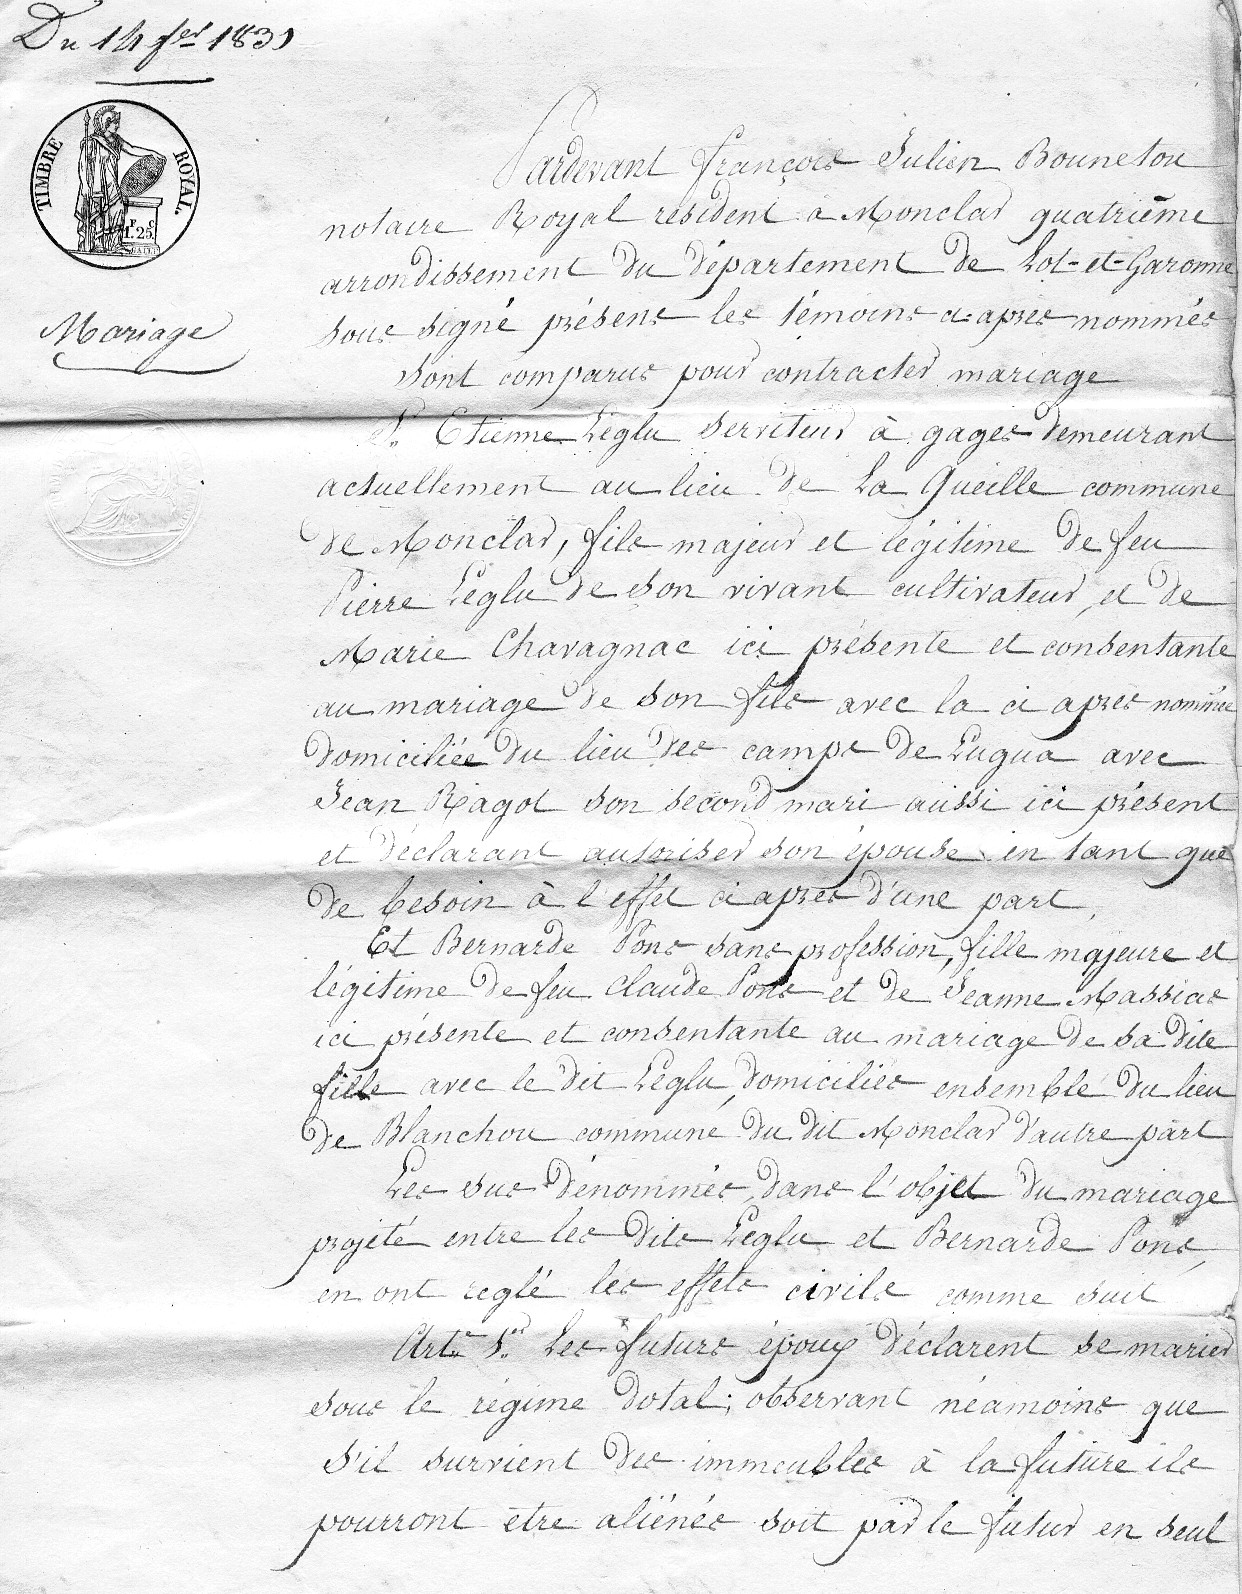 Du 14 fer 1831
TIMBRE ROYAL.
F. C.
1.25.
Mariage
Pardevant François Julien Bouneton
notaire Royal résident a Monclar quatrième
arrondissement du département de Lot-et-Garonne
sous signé présens les témoins ci-après nommés
Sont comparus pour contracter mariage
Sr. Etienne Léglu serviteur à gages demeurant
actuellement au lieu de La Gueille commune
de Monclar, fils majeur et légitime de feu
Pierre Léglu de son vivant cultivateur, et de
Marie Chavagnac ici présente et consentante
au mariage de son fils avec la ci après nommée
domiciliée du lieu des camps de Lugua avec
Jean Ragot son second mari aussi ici présent
et déclarant autoriser son épouse en tant que
de besoin à l'effet ci après d'une part,
Et Bernarde Pons sans profession, fille majeure et
légitime de feu Claude Pons et de Jeanne Massias
ici présente et consentante au mariage de sa dite
fille avec le dit Léglu, domiciliés ensemble du lieu
de Blanchou commune du dit Monclar d'autre part
Les sus dénommés, dans l'objet du mariage
projeté entre les dits Léglu et Bernarde Pons,
en ont reglé les effets civils comme suit
Arte 1er Les futurs époux déclarent se marier
sous le régime dotal; observant néamoins que
s'il survient des immeubles à la future ils
pourront etre aliénés soit par le futur en seul